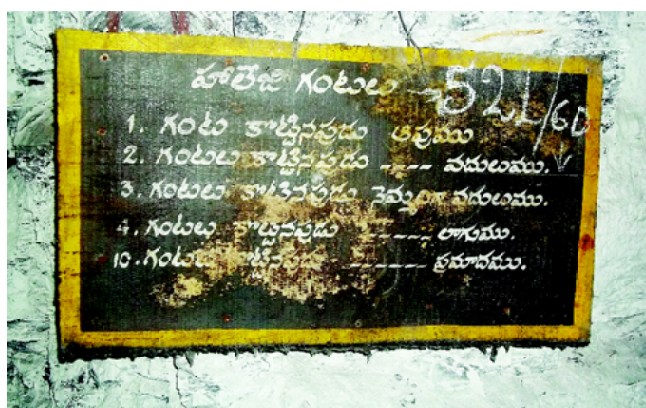 హాలేజి గంటలు - 52L/60
1. గంట కొట్టినపుడు ఆపుము
2. గంటలు కొట్టినపుడు ---- వదులుము.
3. గంటలు కొట్టినపుడు నెమ్మదిగా వదులుము.
4. గంటలు కొట్టినపుడు ------ లాగుము.
10. గంటలు కొట్టినపుడు ------- ప్రమాదము.